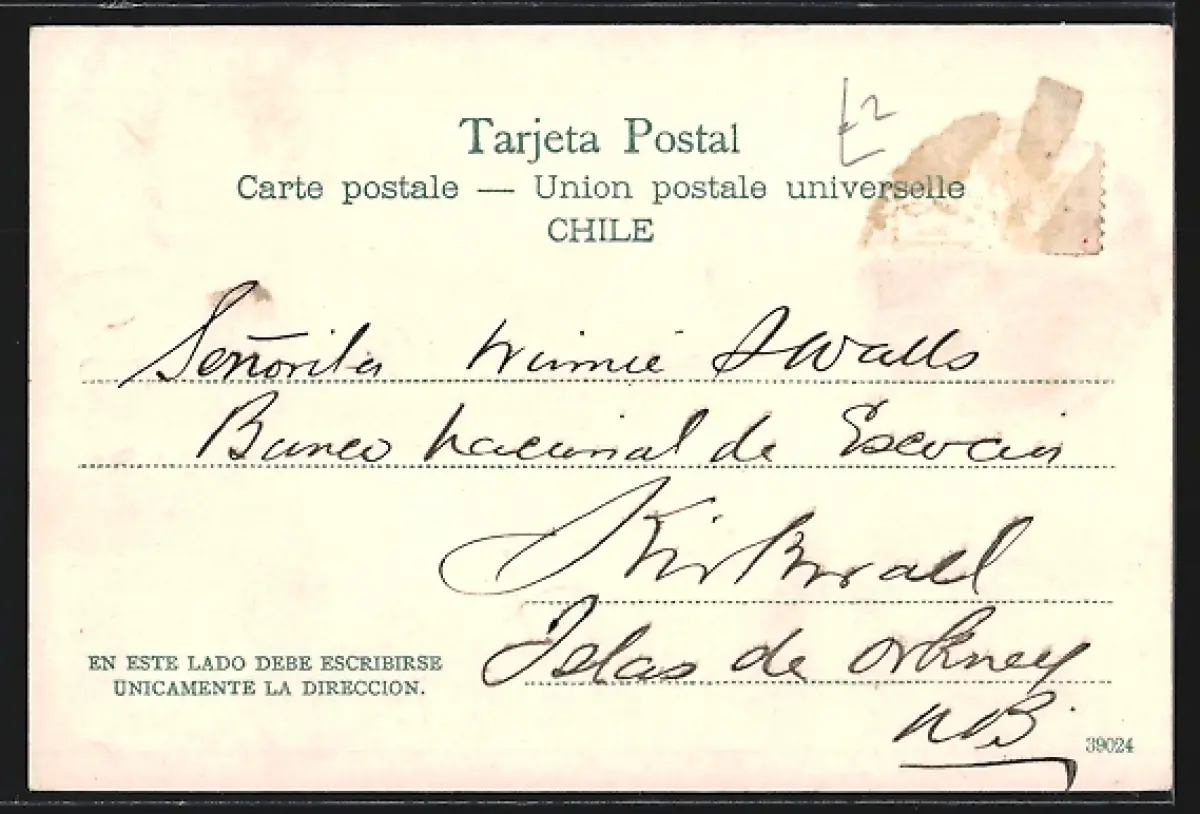 Tarjeta Postal
Carte postale — Union postale universelle
CHILE
£2
Señorita Winnie S Walls
Banco Nacional de Escocia
Kirkwall
Islas de Orkney
N.B.
EN ESTE LADO DEBE ESCRIBIRSE
UNICAMENTE LA DIRECCION.
39024